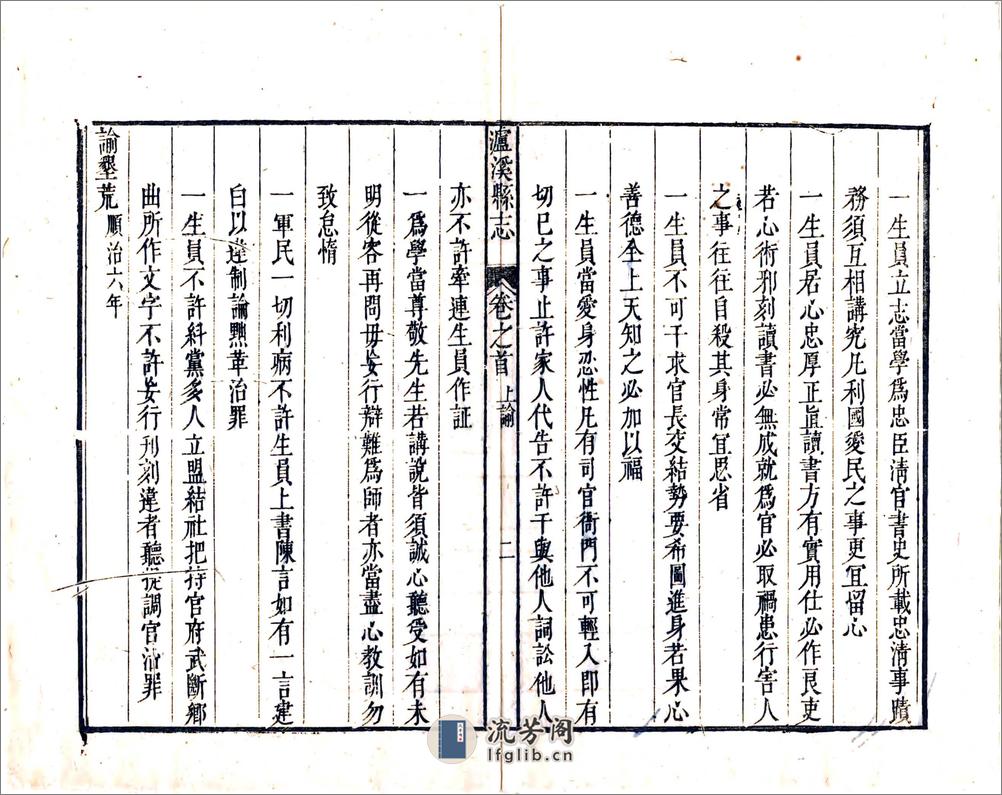 一生員立志當學爲忠臣清官書史所載忠清事蹟
務須互相講究凡利國愛民之事更宜留心
一生員居心忠厚正直讀書方有實用仕必作良吏
若心術邪刻讀書必無成就爲官必取禍患行害人
之事往往自殺其身常宜思省
一生員不可干求官長交結勢要希圖進身若果心
善德全上天知之必加以福
一生員當愛身忍性凡有司官衙門不可輕入即有
切己之事止許家人代告不許干與他人詞訟他人
瀘溪縣志 卷之首 上諭 二
亦不許牽連生員作証
一爲學當尊敬先生若講說皆須誠心聽受如有未
明從容再問毋妄行辯難爲師者亦當盡心教訓勿
致怠惰
一軍民一切利病不許生員上書陳言如有一言建
白以違制論黜革治罪
一生員不許糾黨多人立盟結社把持官府武斷鄉
曲所作文字不許妄行刋刻違者聽提調官治罪
諭墾荒 順治六年
流芳阁
lfglib.cn